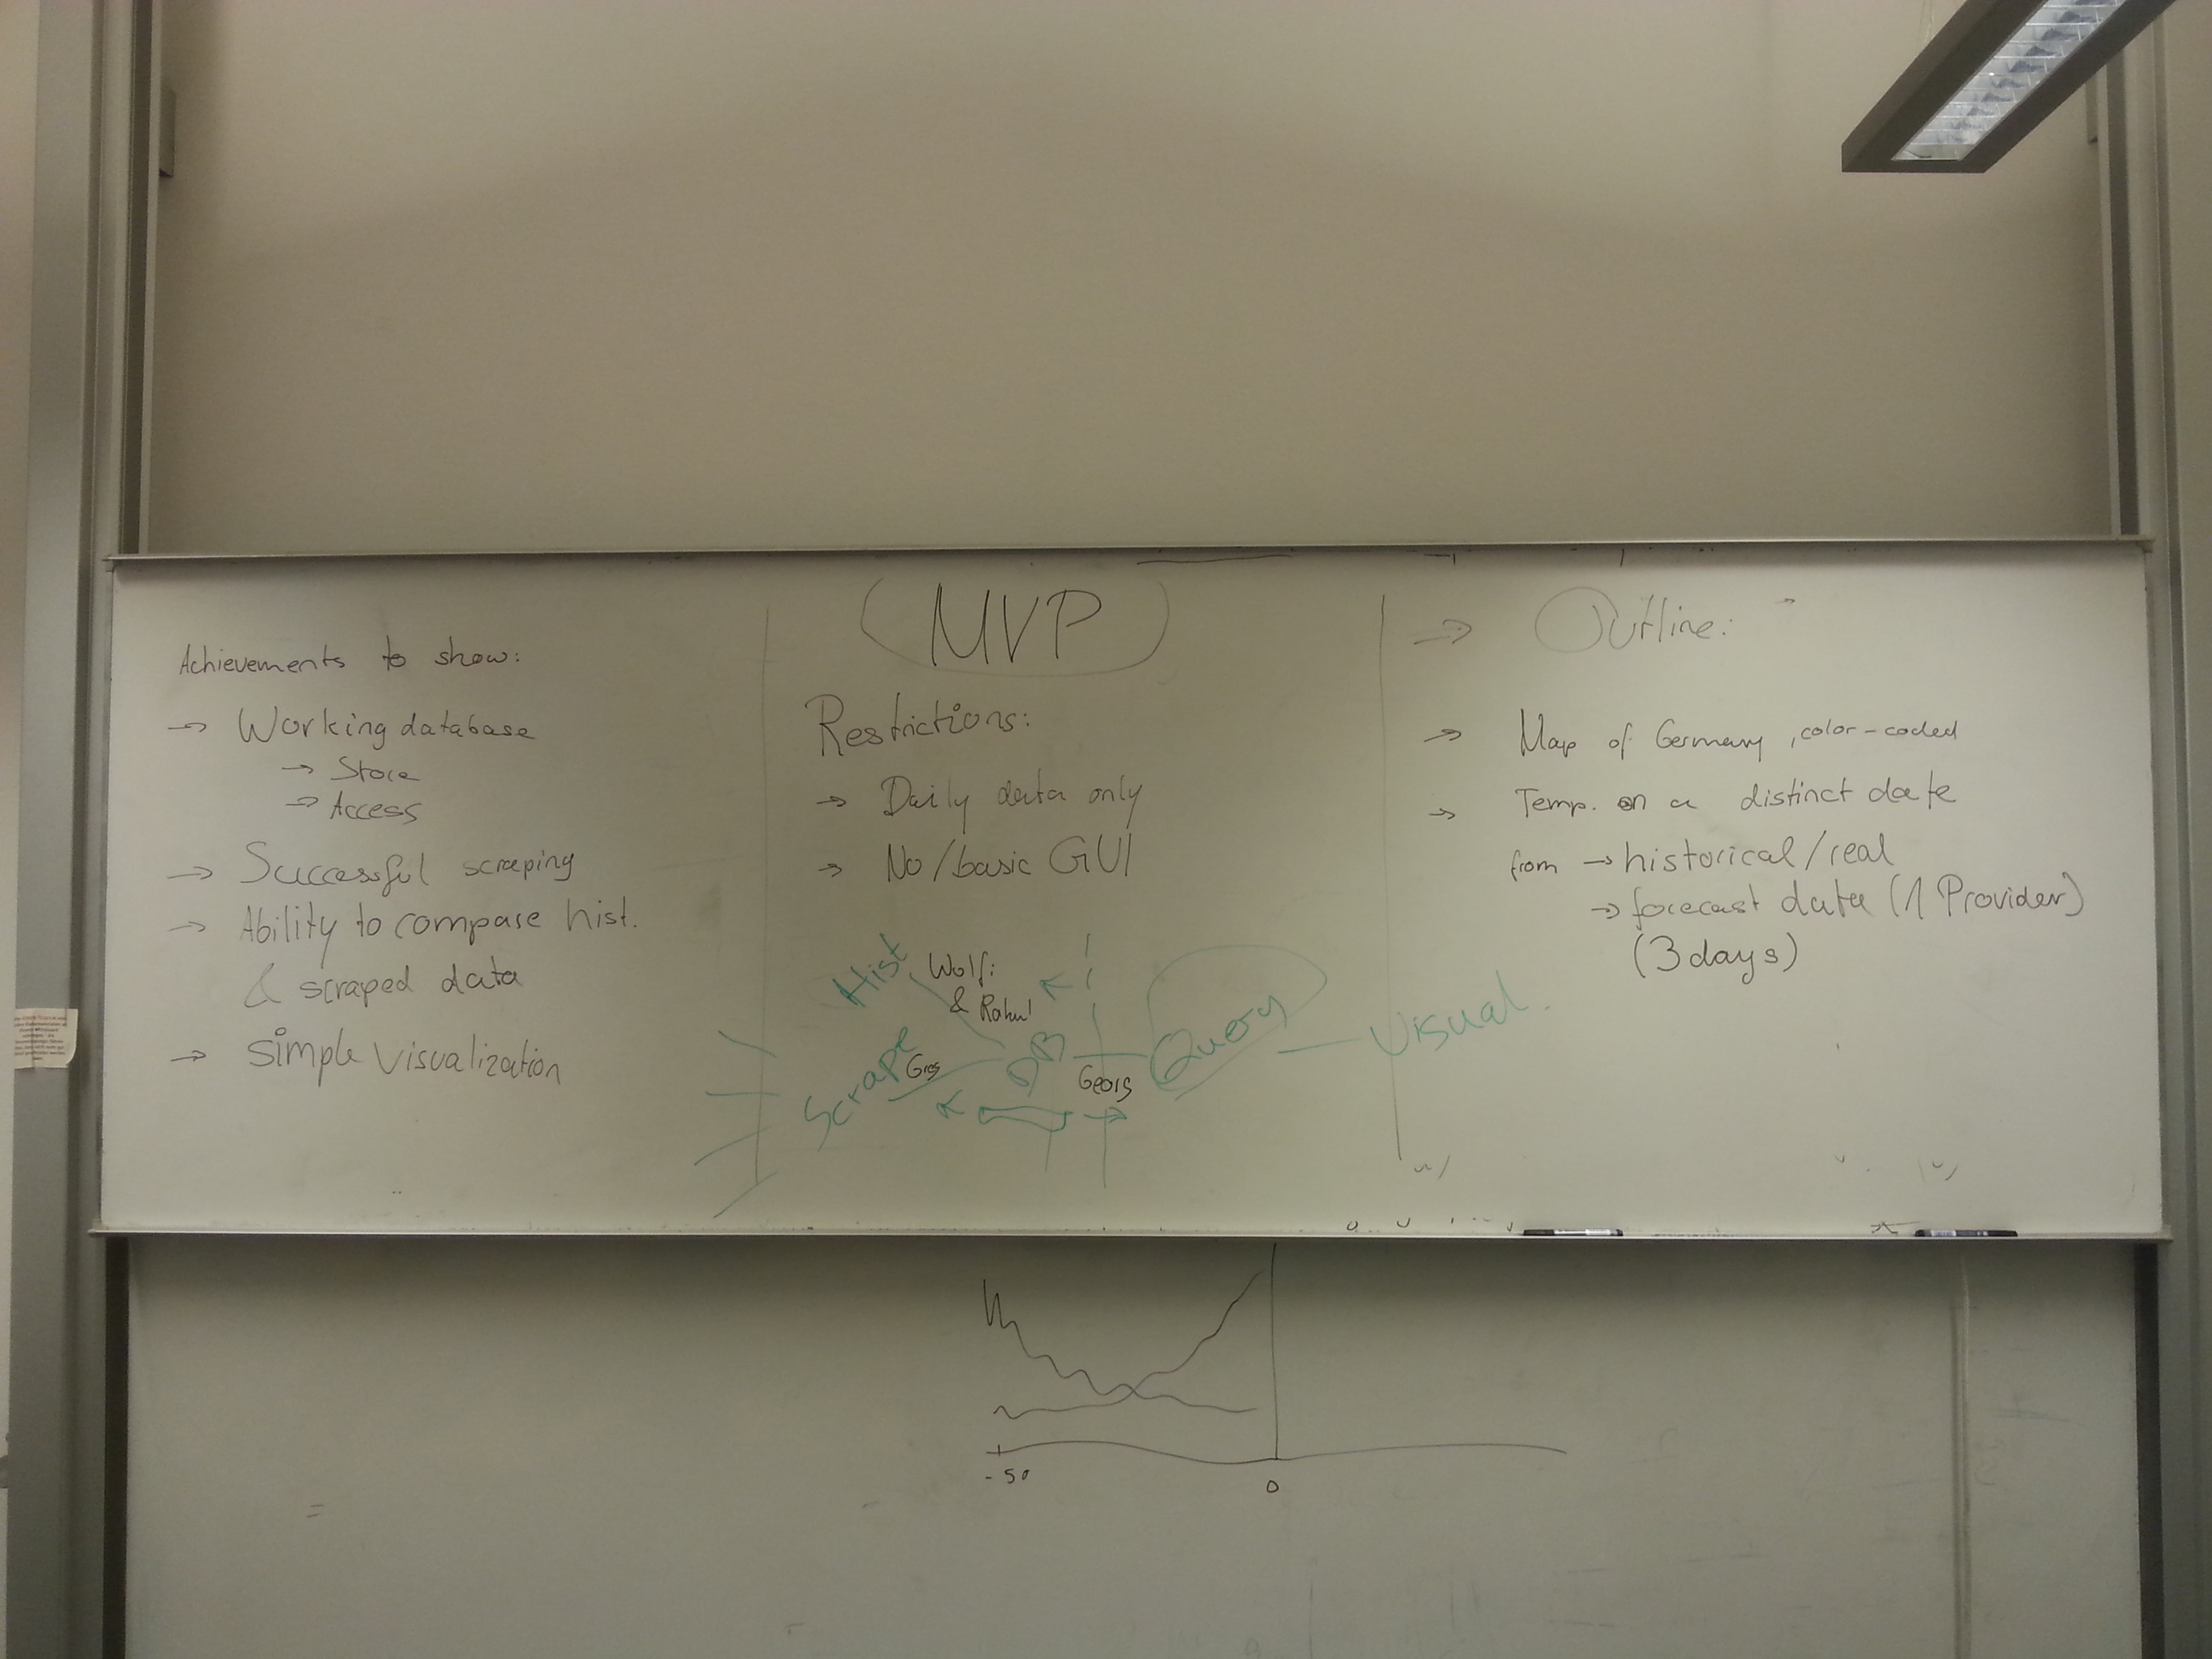 MVP
Achievements to show:
→ Working database
→ Store
→ Access
→ Successful scraping
→ Ability to compare hist.
& scraped data
→ simple visualization
Restrictions:
→ Daily data only
→ No/basic GUI
Hist
Wolfi
& Rahul
Scrape
Greg
DB
Georg
Query
Visual.
→ Outline:
→ Map of Germany, color-coded
→ Temp. on a distinct date
from → historical/real
→ forecast data (1 Provider)
(3 days)
-50
0